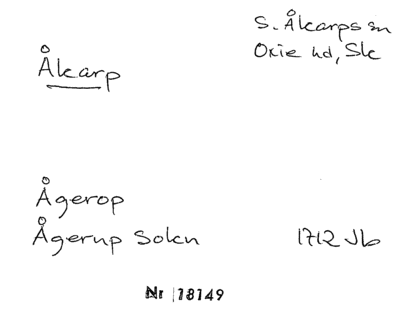 S. Åkarps sn
Oxie hd, Sk
Åkarp
Ågerop
Ågerup Sokn 1712 Jb
Nr 18149